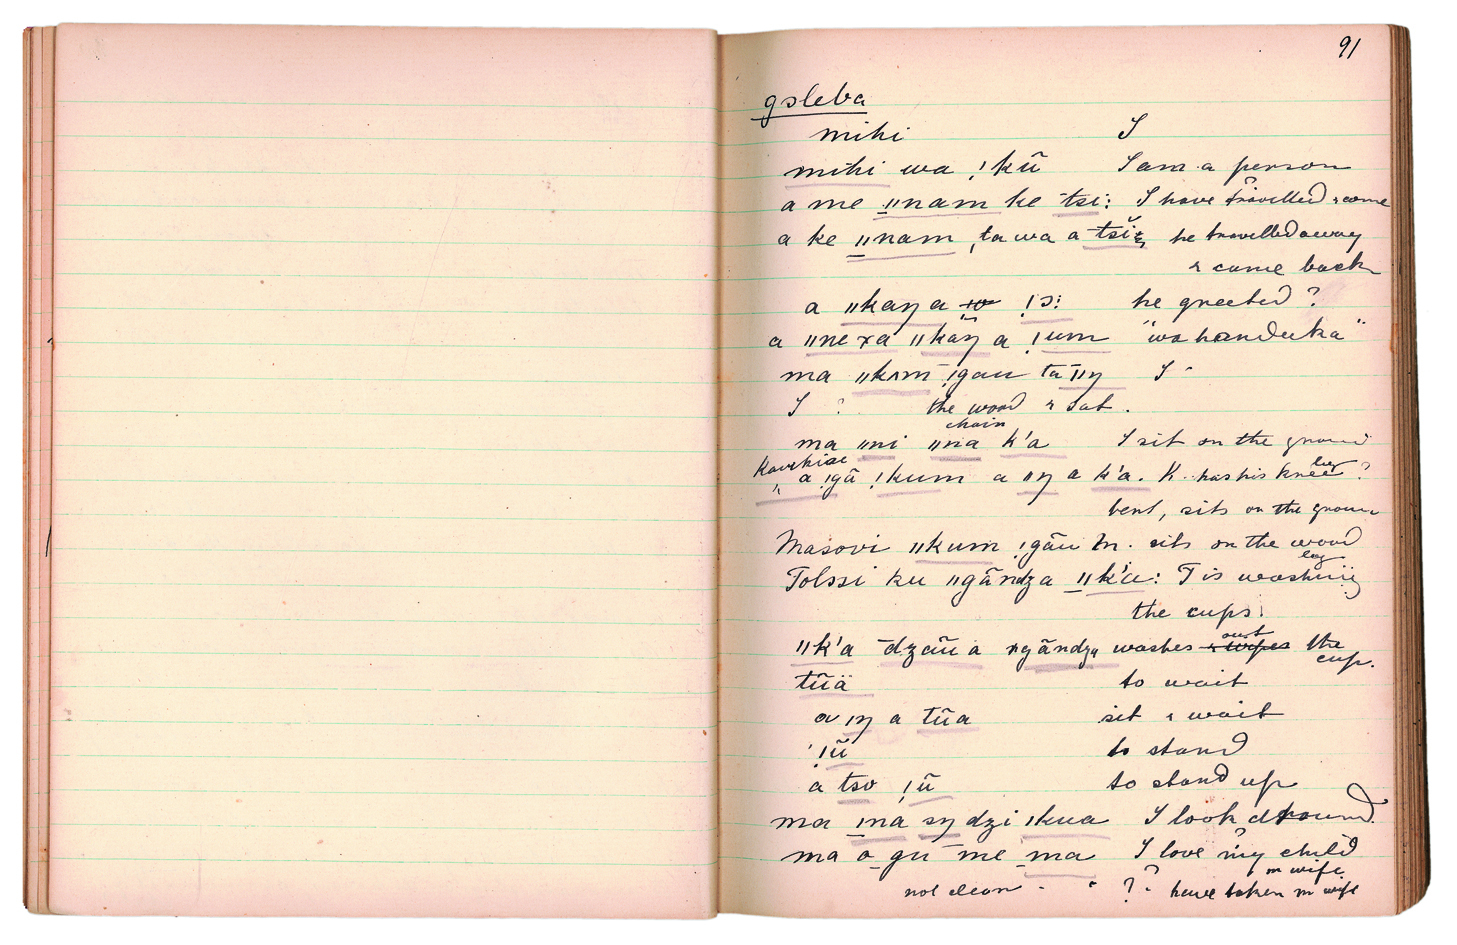 91
gsleba
mihi I
mihi wa !kũ I am a person
a me ǁnam ke tsi: I have travelled & come
a ke ǁnam ta wa a tsĩ he travelled away
& come back
a ǁkaŋ a !ɔ: he greeted ?
a ǁne xa ǁkãŋ a !um "wa handuka"
ma ǁkʌm !gau ta ǁŋ I
I ? the wood & sat.
chair
ma ǁni ǁna k'a I sit on the ground
Kavikise
a !gā !kum a ǁŋ a k'a. K. has his knee leg ?
bent, sits on the ground
Masovi ǁkum !gāu M. sits on the wood
log
Tolssi ku ǁgāndza ǁk'a: T is washing
the cups.
ǁk'a dzaũ a ngāndza washes & wipes out the
cup.
tũä to wait
a ŋ a tũa sit & wait
!ũ to stand
a tso !ũ to stand up
ma ǀna sŋ dzi ǀkua I look around.
ma o gu me ma I love my child
m wife
not clear ? ? have taken m wife